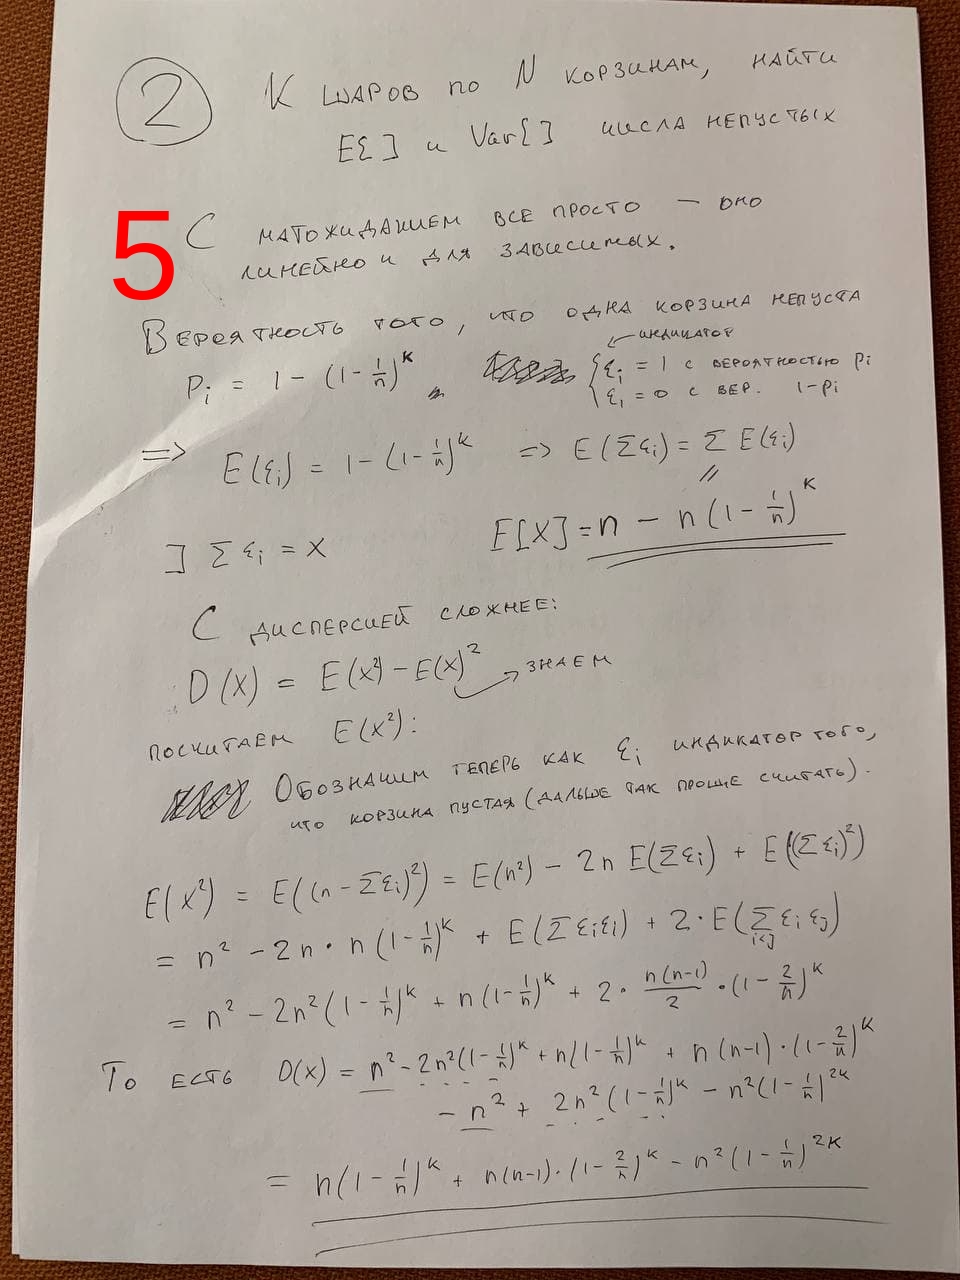 2 К шаров по N корзинам, найти
E[] и Var[] числа непустых
5
С матожиданием все просто — оно
линейно и для зависимых.
Вероятность того, что одна корзина непуста
индикатор
Pᵢ = 1 - (1 - 1/n)^k { εᵢ = 1 с вероятностью pᵢ
εᵢ = 0 с вер. 1-pᵢ
=> E(εᵢ) = 1 - (1 - 1/n)^k => E(Σεᵢ) = Σ E(εᵢ)
] Σ εᵢ = X E[X] = n - n(1 - 1/n)^k
С дисперсией сложнее:
D(X) = E(X²) - E(X)² → знаем
посчитаем E(X²):
Обозначим теперь как εᵢ индикатор того,
что корзина пустая (дальше так проще считать).
E(X²) = E((n - Σεᵢ)²) = E(n²) - 2n E(Σεᵢ) + E((Σεᵢ)²)
= n² - 2n · n(1 - 1/n)^k + E(Σεᵢεᵢ) + 2 · E(Σ_{i<j} εᵢ εⱼ)
= n² - 2n²(1 - 1/n)^k + n(1 - 1/n)^k + 2 · n(n-1)/2 · (1 - 2/n)^k
То есть D(X) = n² - 2n²(1 - 1/n)^k + n(1 - 1/n)^k + n(n-1) · (1 - 2/n)^k
- n² + 2n²(1 - 1/n)^k - n²(1 - 1/n)^2k
= n(1 - 1/n)^k + n(n-1) · (1 - 2/n)^k - n²(1 - 1/n)^2k